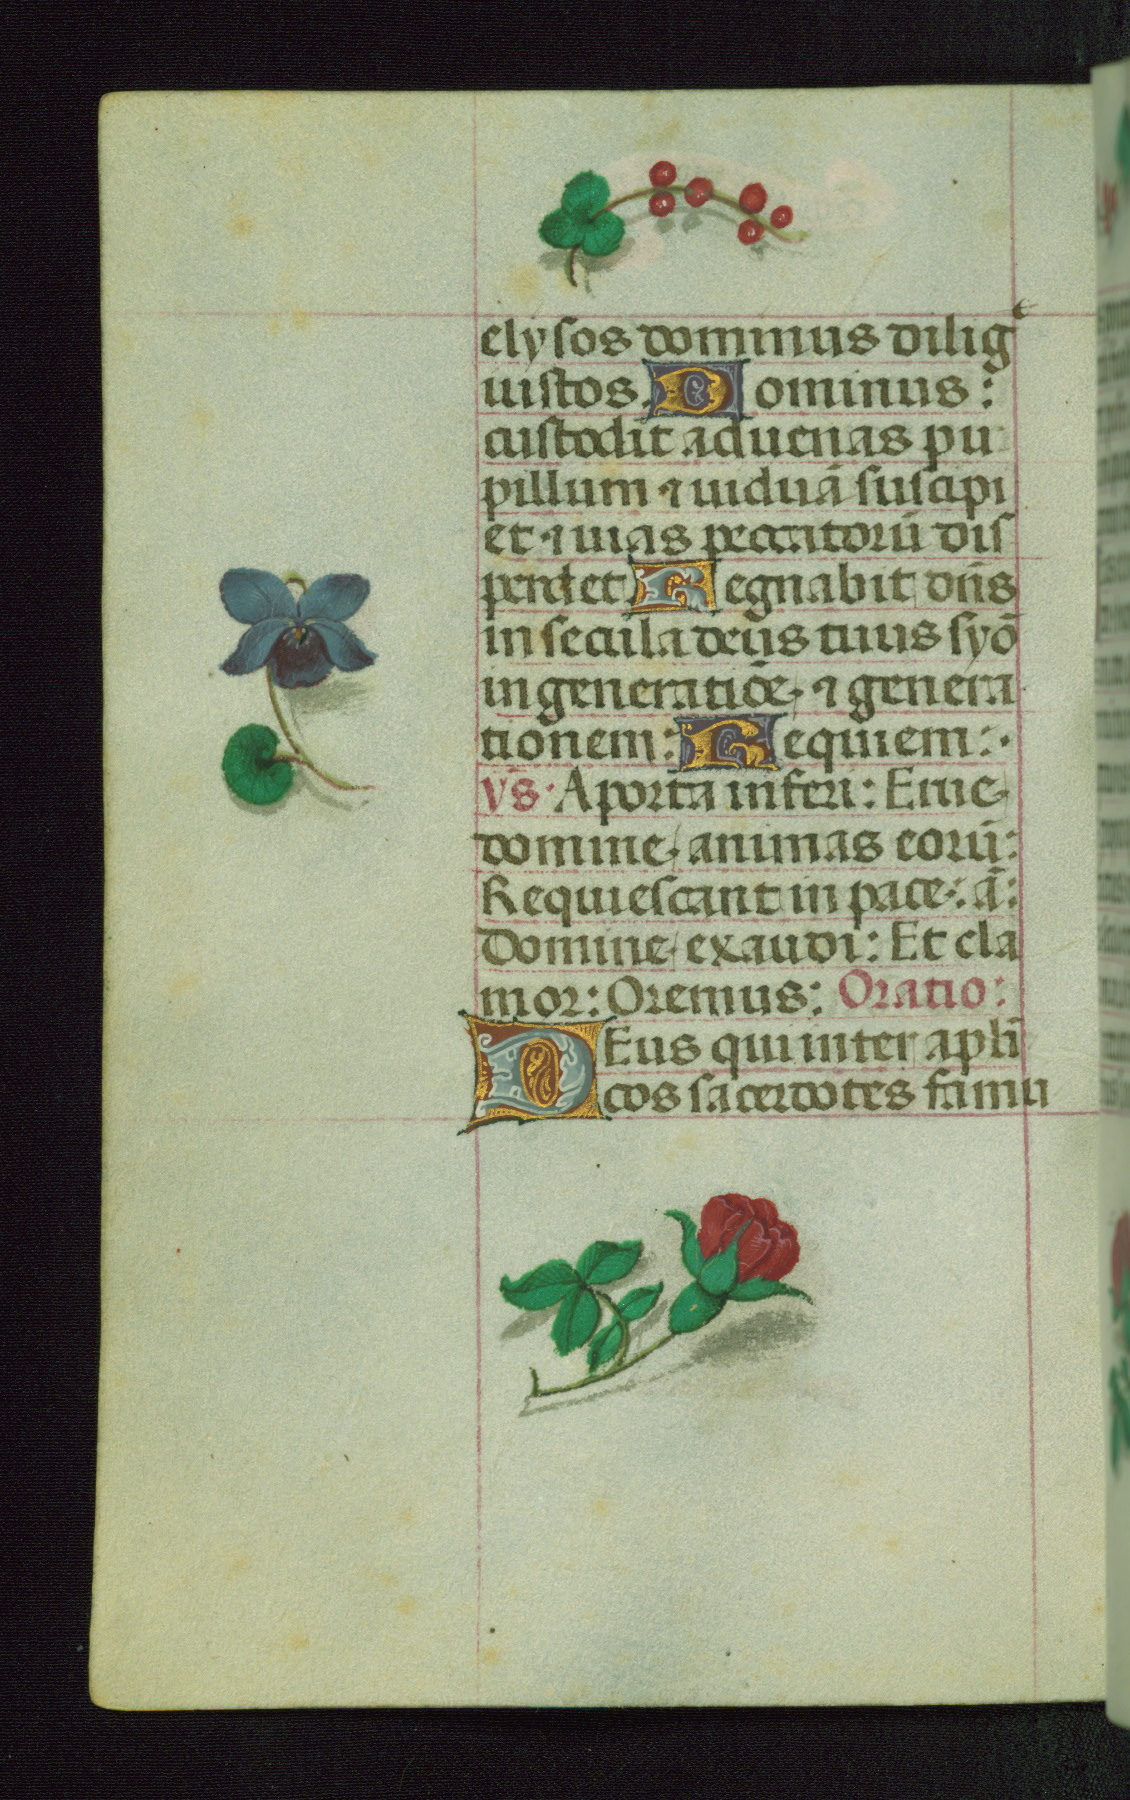 elysos dominus diligᵗ
uistos. Dominus:
custodit aduenas pu
pillum ⁊ uiduā suscipi
et ⁊ uias peccatorū dis
perdet Regnabit dn̄s
in secula deus tuus syō
in generatiōe, ⁊ genera
tionem: Requiem:·
Vs̄· A porta inferi: Erue,
domine, animas eorū:
Requiescant in pace: ā:
Domine, exaudi: Et cla
mor: Oremus: Oratio:
DEus qui inter apl̄i
cos sacerdotes famu